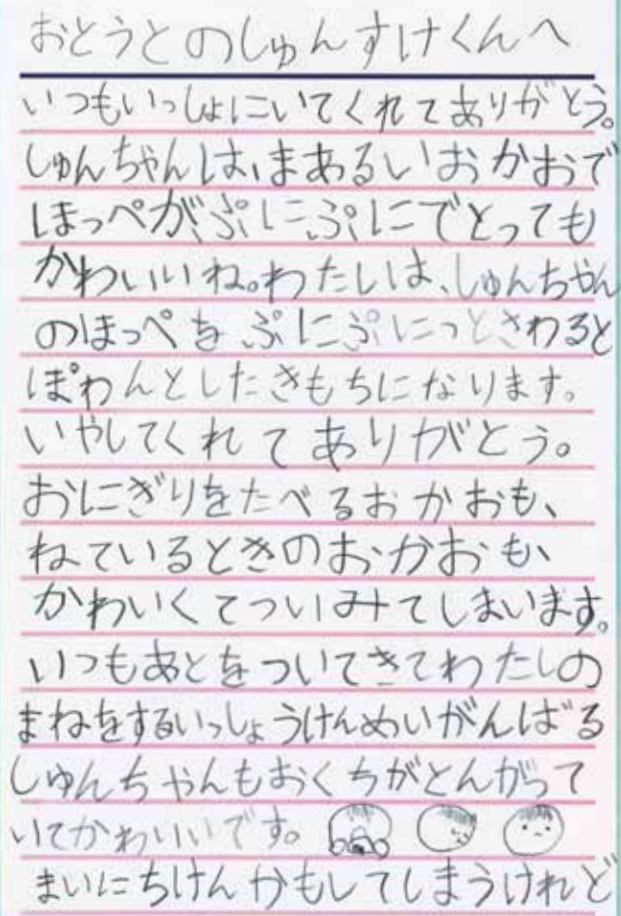 おとうとのしゅんすけくんへ
いつもいっしょにいてくれてありがとう。
しゅんちゃんは、まあるいおかおで
ほっぺが、ぷにぷにでとっても
かわいいね。わたしは、しゅんちゃん
のほっぺをぷにぷにっとさわると
ぽわんとしたきもちになります。
いやしてくれてありがとう。
おにぎりをたべるおかおも、
ねているときのおかおも、
かわいくてついみてしまいます。
いつもあとをついてきてわたしの
まねをするいっしょうけんめいがんばる
しゅんちゃんもおくちがとんがって
いてかわいいです。
まいにちけんかもしてしまうけれど